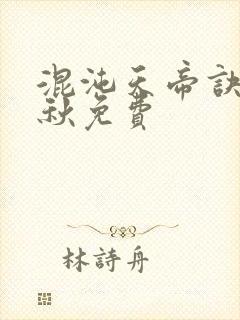 混沌天帝訣
秋免費
林詩舟